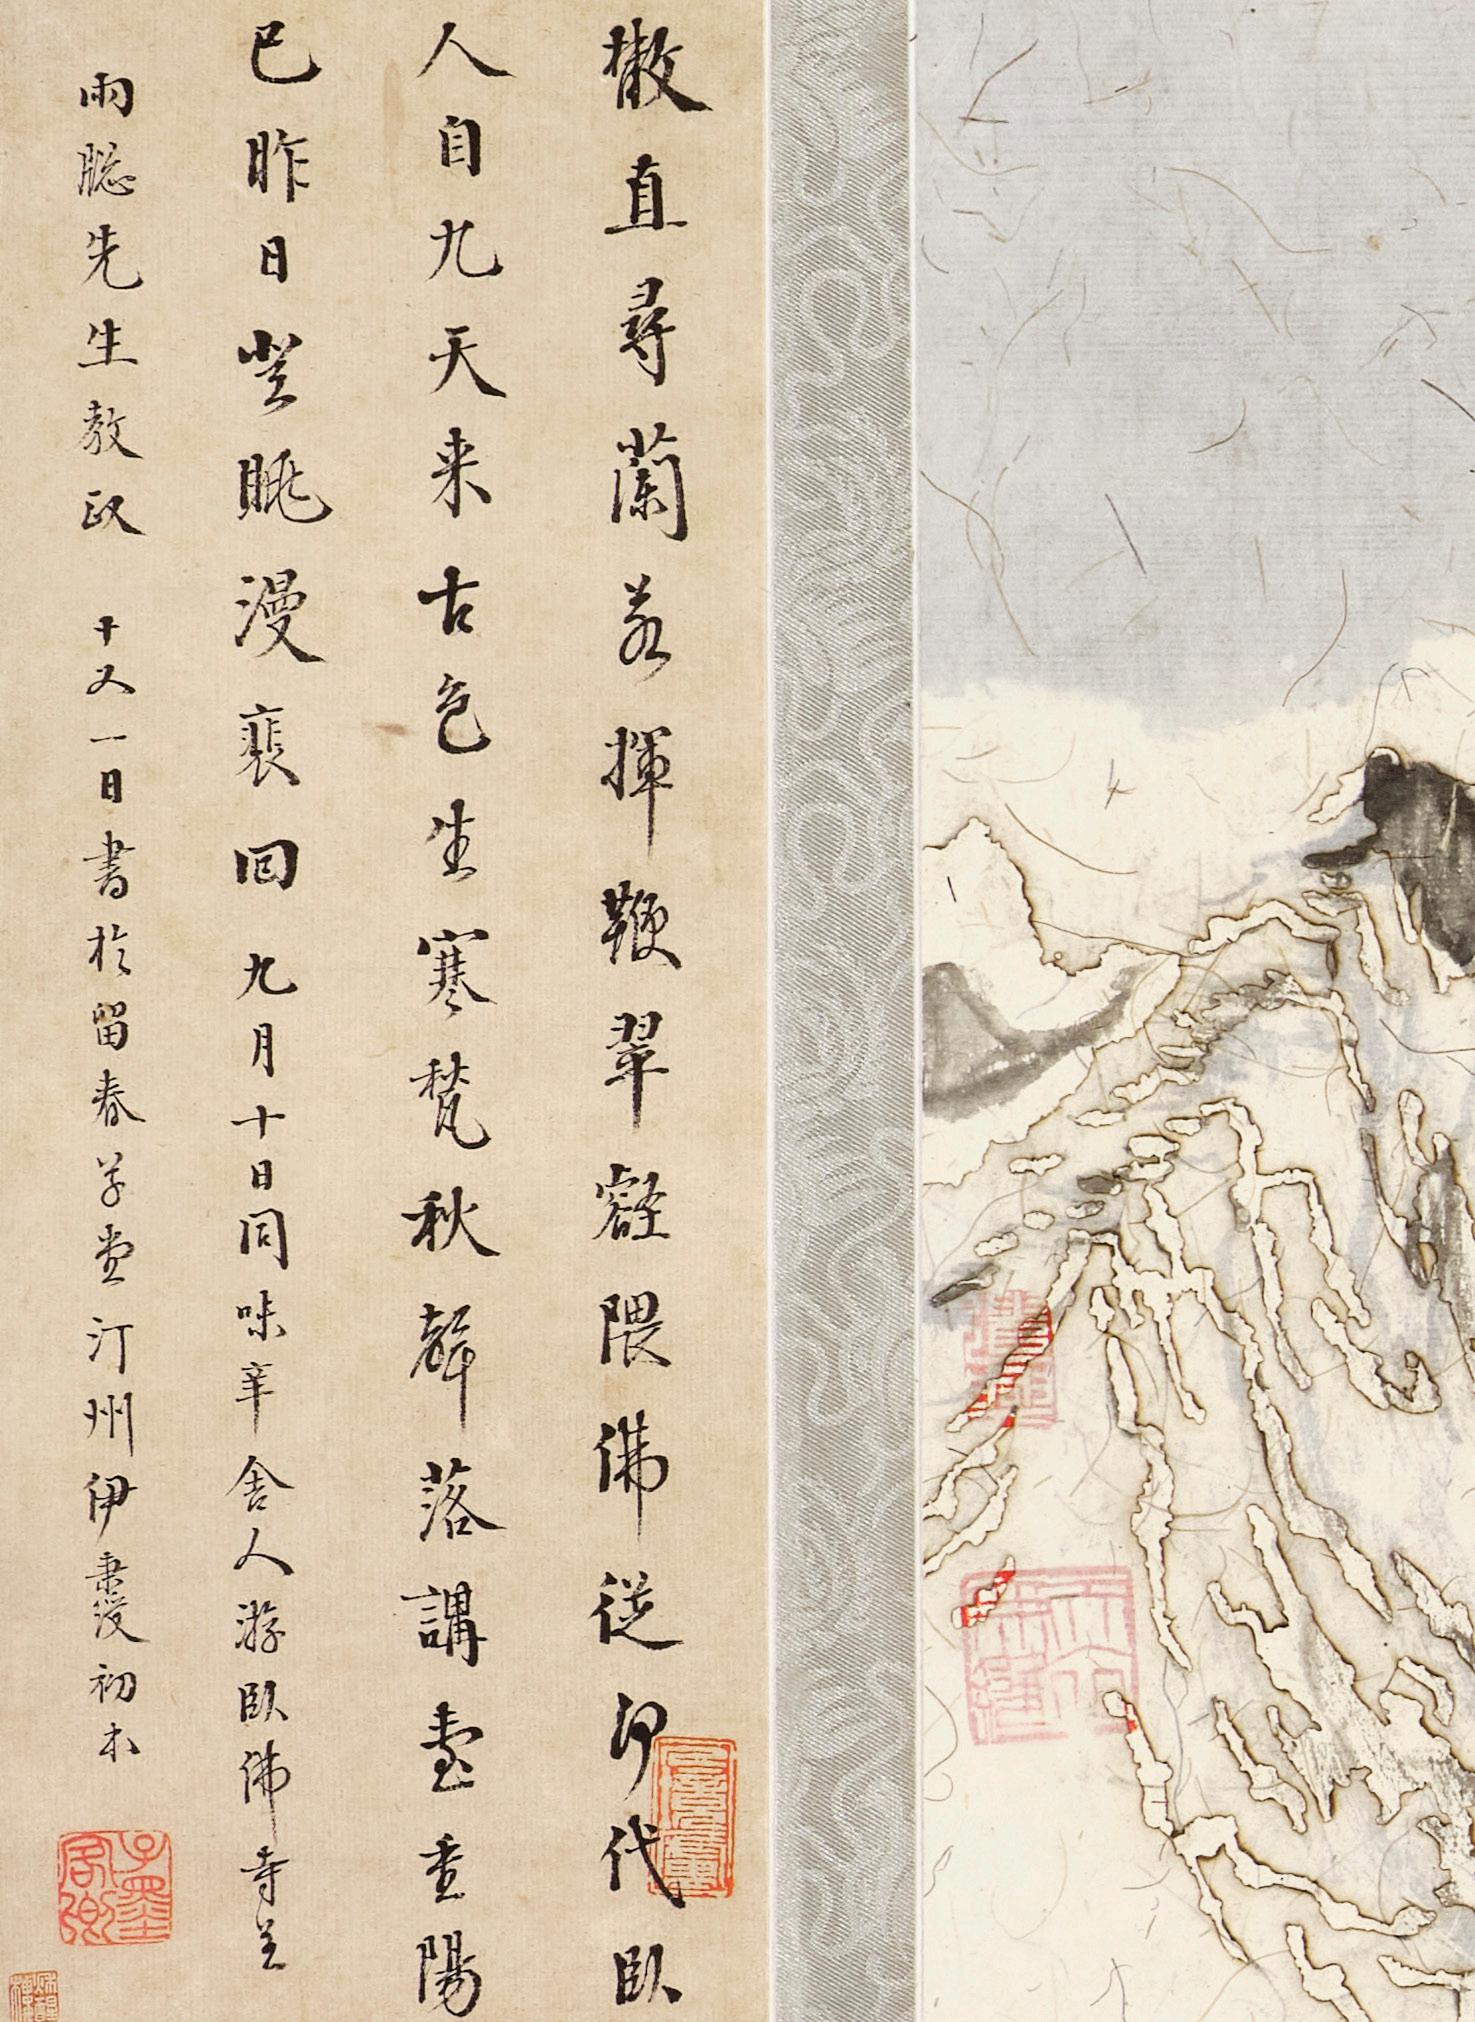 撤直尋蘭若揮鞭翠壑隈佛從何代臥
人自九天来古色生寒甃秋聲落講臺重陽
已昨日登眺漫裴回 九月十日同味辛舍人游臥佛寺
雨聰先生教政 十又一日書於留春草堂汀州伊秉綬初本